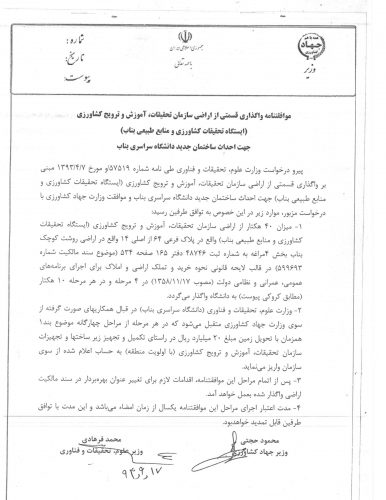 شماره:
تاریخ:
پیوست:
جمهوری اسلامی ایران
بسمه تعالی
جهاد
کشاورزی
وزیر
موافقتنامه واگذاری قسمتی از اراضی سازمان تحقیقات، آموزش و ترویج کشاورزی
(ایستگاه تحقیقات کشاورزی و منابع طبیعی بناب)
جهت احداث ساختمان جدید دانشگاه سراسری بناب
پیرو درخواست وزارت علوم، تحقیقات و فناوری طی نامه شماره ۵۷۵۱۹/و مورخ ۱۳۹۳/۴/۷ مبنی
بر واگذاری قسمتی از اراضی سازمان تحقیقات، آموزش و ترویج کشاورزی (ایستگاه تحقیقات کشاورزی و
منابع طبیعی بناب) جهت احداث ساختمان جدید دانشگاه سراسری بناب و موافقت وزارت جهاد کشاورزی با
درخواست مزبور، موارد زیر در این خصوص به توافق طرفین رسید:
۱- میزان ۴۰ هکتار از اراضی سازمان تحقیقات، آموزش و ترویج کشاورزی (ایستگاه تحقیقات
کشاورزی و منابع طبیعی بناب) واقع در پلاک فرعی ۶۴ از اصلی ۱۴ واقع در اراضی روشت کوچک
بناب بخش ۴مراغه به شماره ثبت ۴۸۷۴۶ دفتر ۱۶۵ صفحه ۵۳۴ (موضوع سند مالکیت شماره
۵۹۹۶۹۳) در قالب لایحه قانونی نحوه خرید و تملک اراضی و املاک برای اجرای برنامه‌های
عمومی، عمرانی و نظامی دولت (مصوب ۱۳۵۸/۱۱/۱۷) در ۴ مرحله و در هر مرحله ۱۰ هکتار
(مطابق کروکی پیوست) به دانشگاه واگذار می‌گردد.
۲- وزارت علوم، تحقیقات و فناوری (دانشگاه سراسری بناب) در قبال همکاریهای صورت گرفته از
سوی وزارت جهاد کشاورزی متقبل می‌شود که در هر مرحله از مراحل چهارگانه موضوع بند۱
همزمان با تحویل زمین مبلغ ۲۰ میلیارد ریال در راستای تکمیل و تجهیز زیر ساختها و تجهیزات
سازمان تحقیقات، آموزش و ترویج کشاورزی (با اولویت منطقه) به حساب اعلام شده از سوی
سازمان واریز می‌نماید.
۳- پس از اتمام مراحل این موافقتنامه، اقدامات لازم برای تغییر عنوان بهره‌بردار در سند مالکیت
اراضی واگذار شده بعمل خواهد آمد.
۴- مدت اعتبار اجرای مراحل این موافقتنامه یکسال از زمان امضاء می‌باشد و این مدت با توافق
طرفین قابل تمدید خواهدبود.
محمود حجتی
وزیر جهاد کشاورزی
محمد فرهادی
وزیر علوم، تحقیقات و فناوری